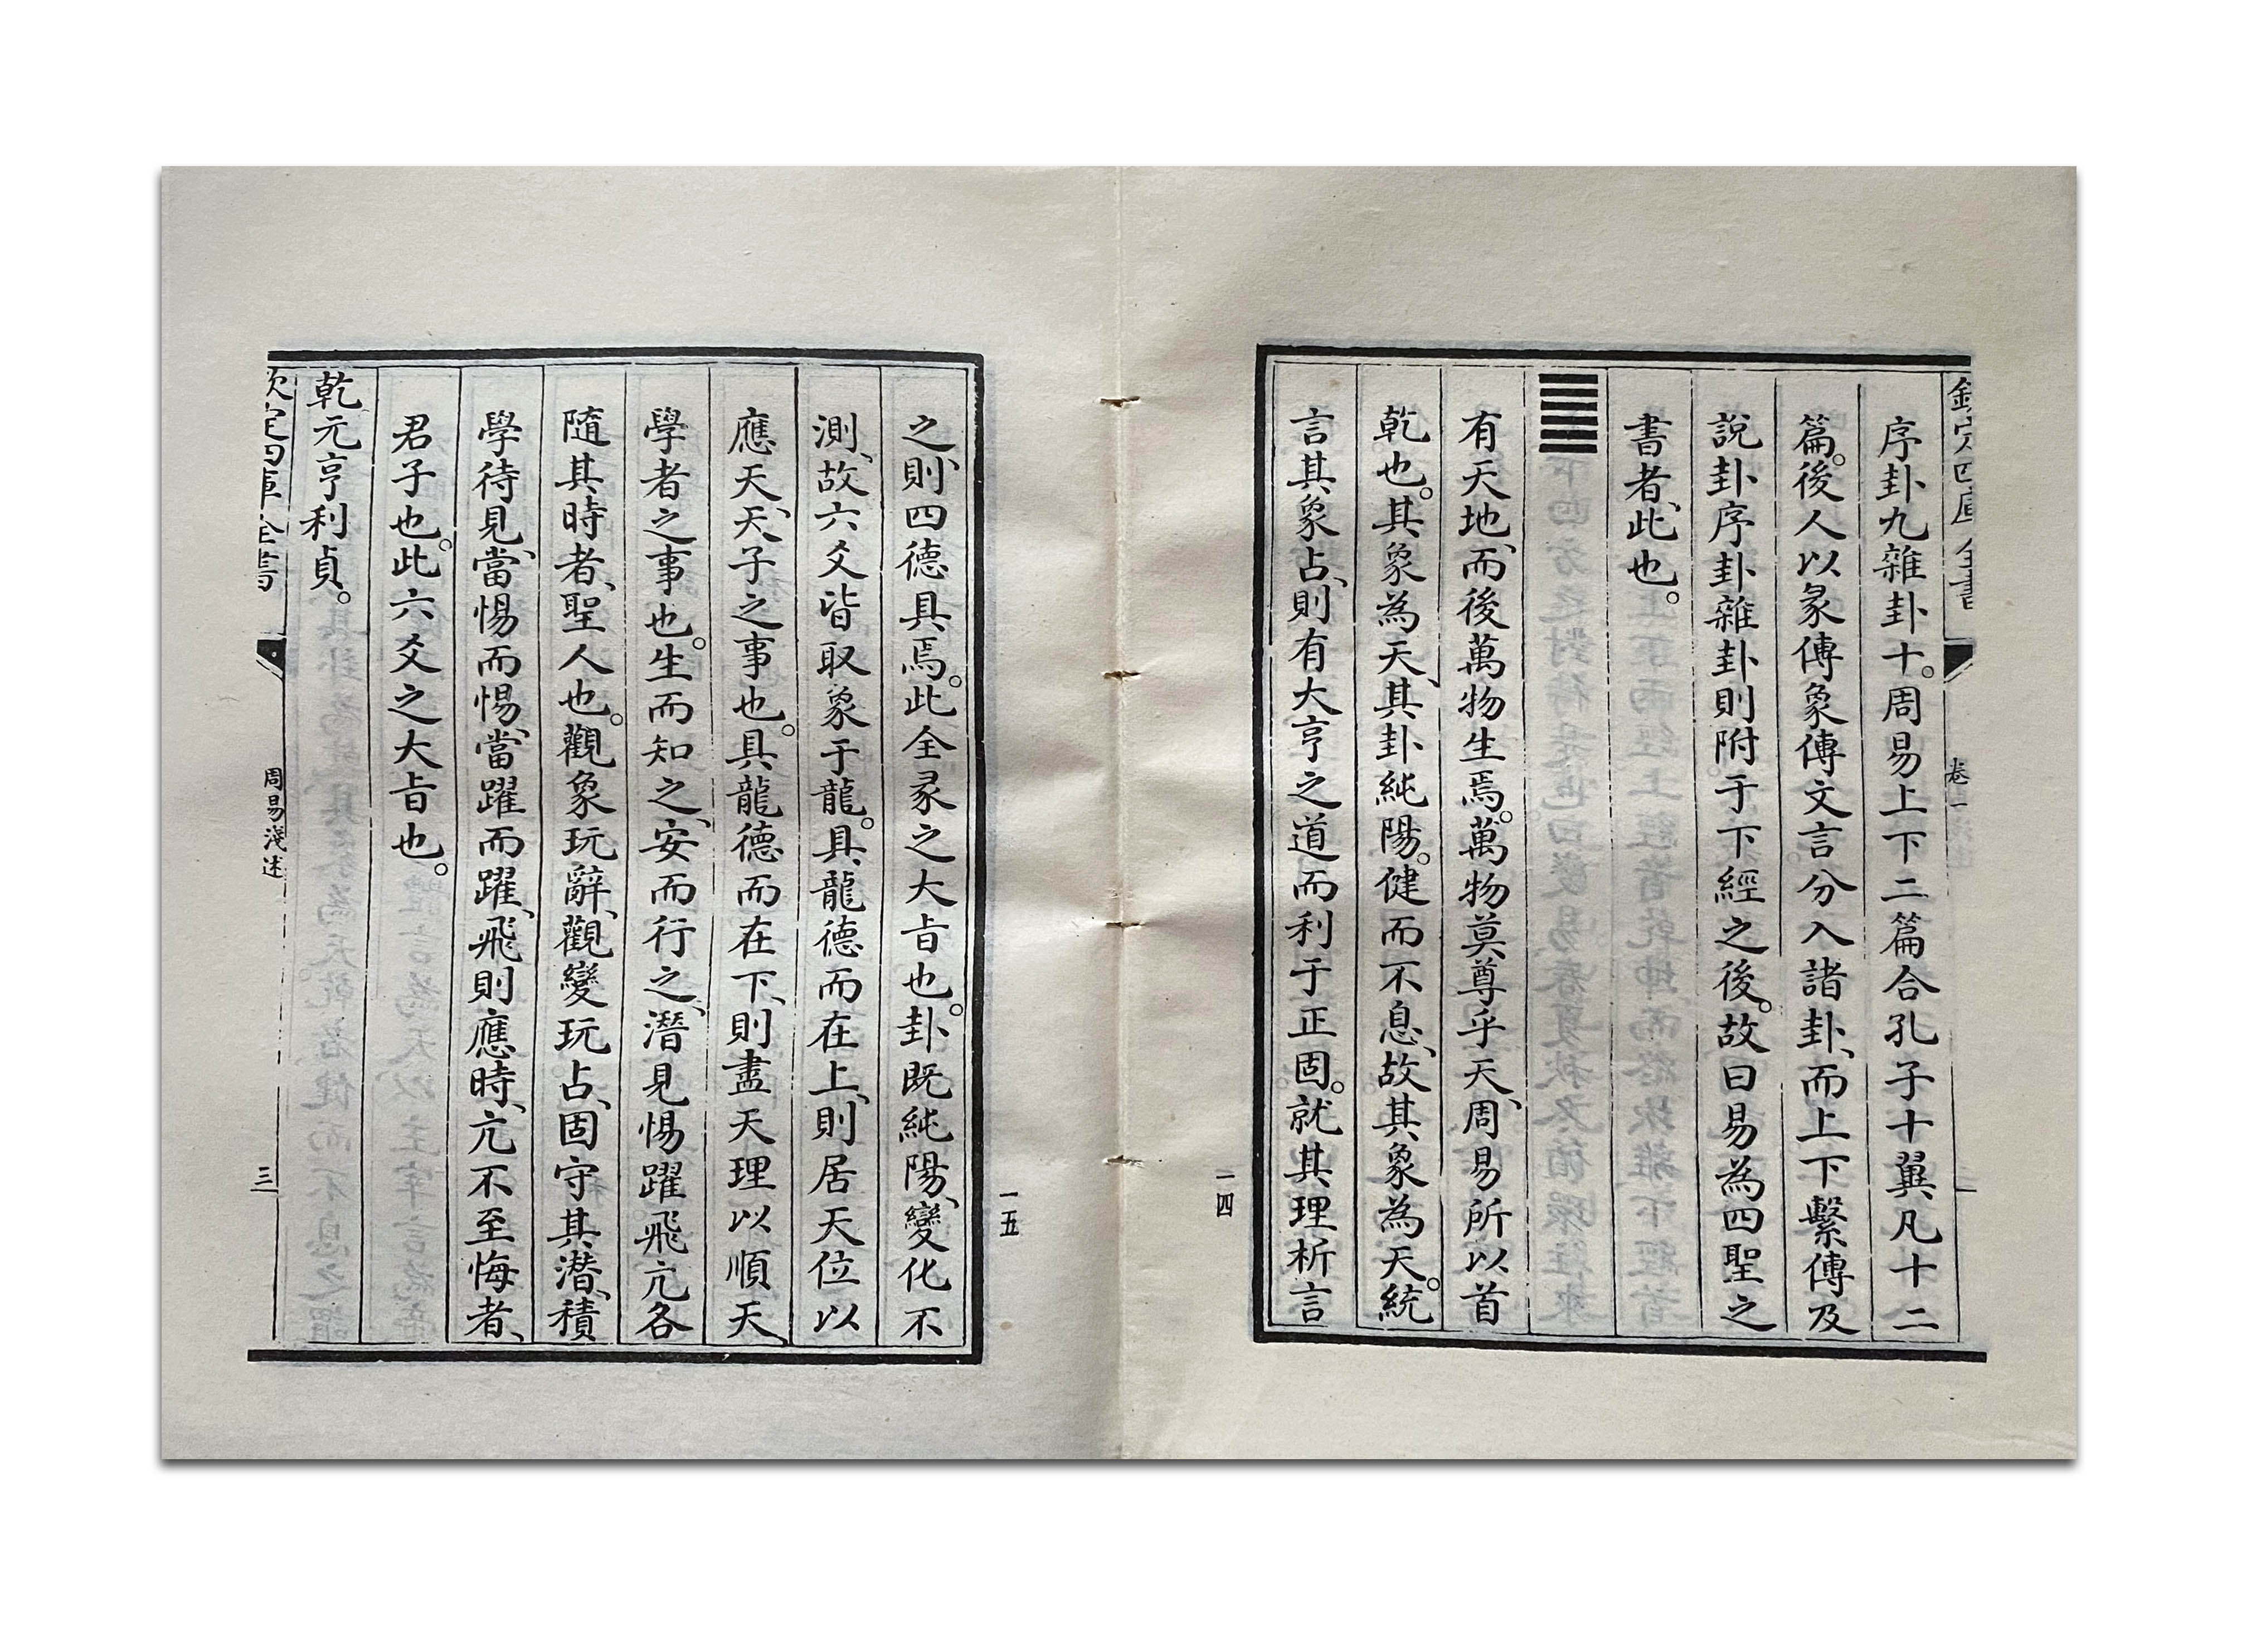 欽定四庫全書
卷一
序卦九雜卦十。周易上下二篇合孔子十翼凡十二
篇。後人以彖傳象傳文言分入諸卦、而上下繫傳及
說卦序卦雜卦則附于下經之後。故曰易為四聖之
書者、此也。
有天地、而後萬物生焉。萬物莫尊乎天、周易所以首
乾也。其象為天、其卦純陽。健而不息、故其象為天。統
言其象占、則有大亨之道而利于正固。就其理析言
一四
一五
之、則四德具焉。此全彖之大旨也。卦既純陽、變化不
測、故六爻皆取象于龍。具龍德而在上、則居天位以
應天、天子之事也。具龍德而在下、則盡天理以順天、
學者之事也。生而知之、安而行之、潛見惕躍飛亢各
隨其時者、聖人也。觀象玩辭、觀變玩占、固守其潛、積
學待見、當惕而惕、當躍而躍、飛則應時、亢不至悔者、
君子也。此六爻之大旨也。
乾元亨利貞。
欽定四庫全書
周易淺述
三